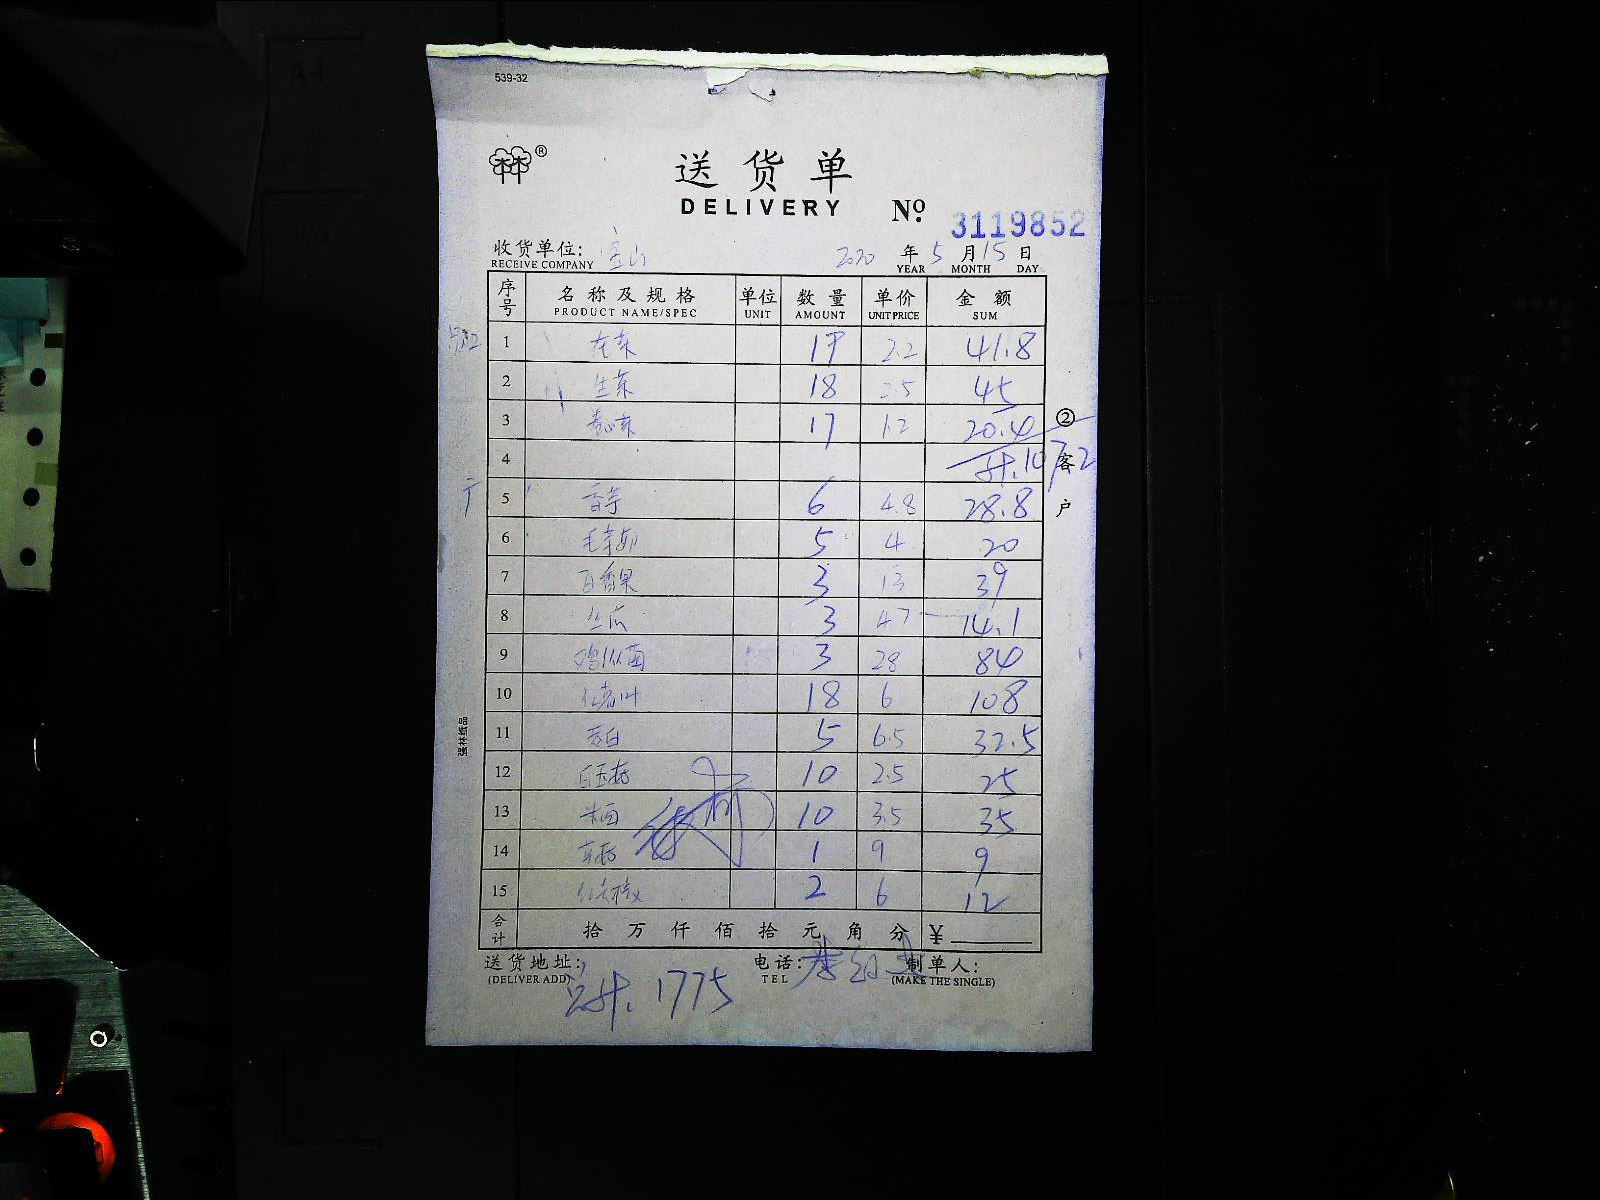 539-32
送货单
DELIVERY № 3119852
收货单位: 宝山 2020 年 5 月 15 日
RECEIVE COMPANY YEAR MONTH DAY
序号 名称及规格 单位 数量 单价 金额
PRODUCT NAME/SPEC UNIT AMOUNT UNIT PRICE SUM
1 19 2.2 41.8
2 生菜 18 2.5 45
3 17 1.2 20.4
4 计.107.2
5 香芋 6 4.8 28.8
6 毛芋卯 5 4 20
7 百香果 3 13 39
8 丝瓜 3 4.7 14.1
9 鸡枞菌 3 28 84
10 18 6 108
11 茭白 5 6.5 32.5
12 白玉菇 10 2.5 25
13 10 3.5 35
14 1 9 9
15 2 6 12
合计 拾 万 仟 佰 拾 元 角 分 ¥
送货地址: 电话: 制单人:
(DELIVER ADD) TEL (MAKE THE SINGLE)
总计. 1775
② 客户
强林纸品